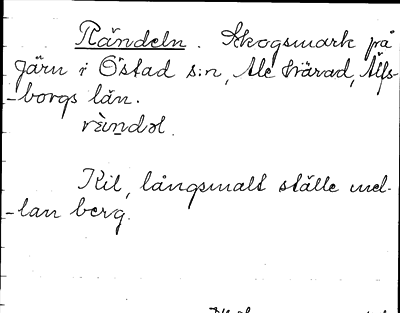 Rändeln. Skogsmark på
Järn i Östad s:n, Ale härad, Älfs-
-borgs län.
rän̲dəl.
Kil, långsmalt ställe mel-
-lan berg.